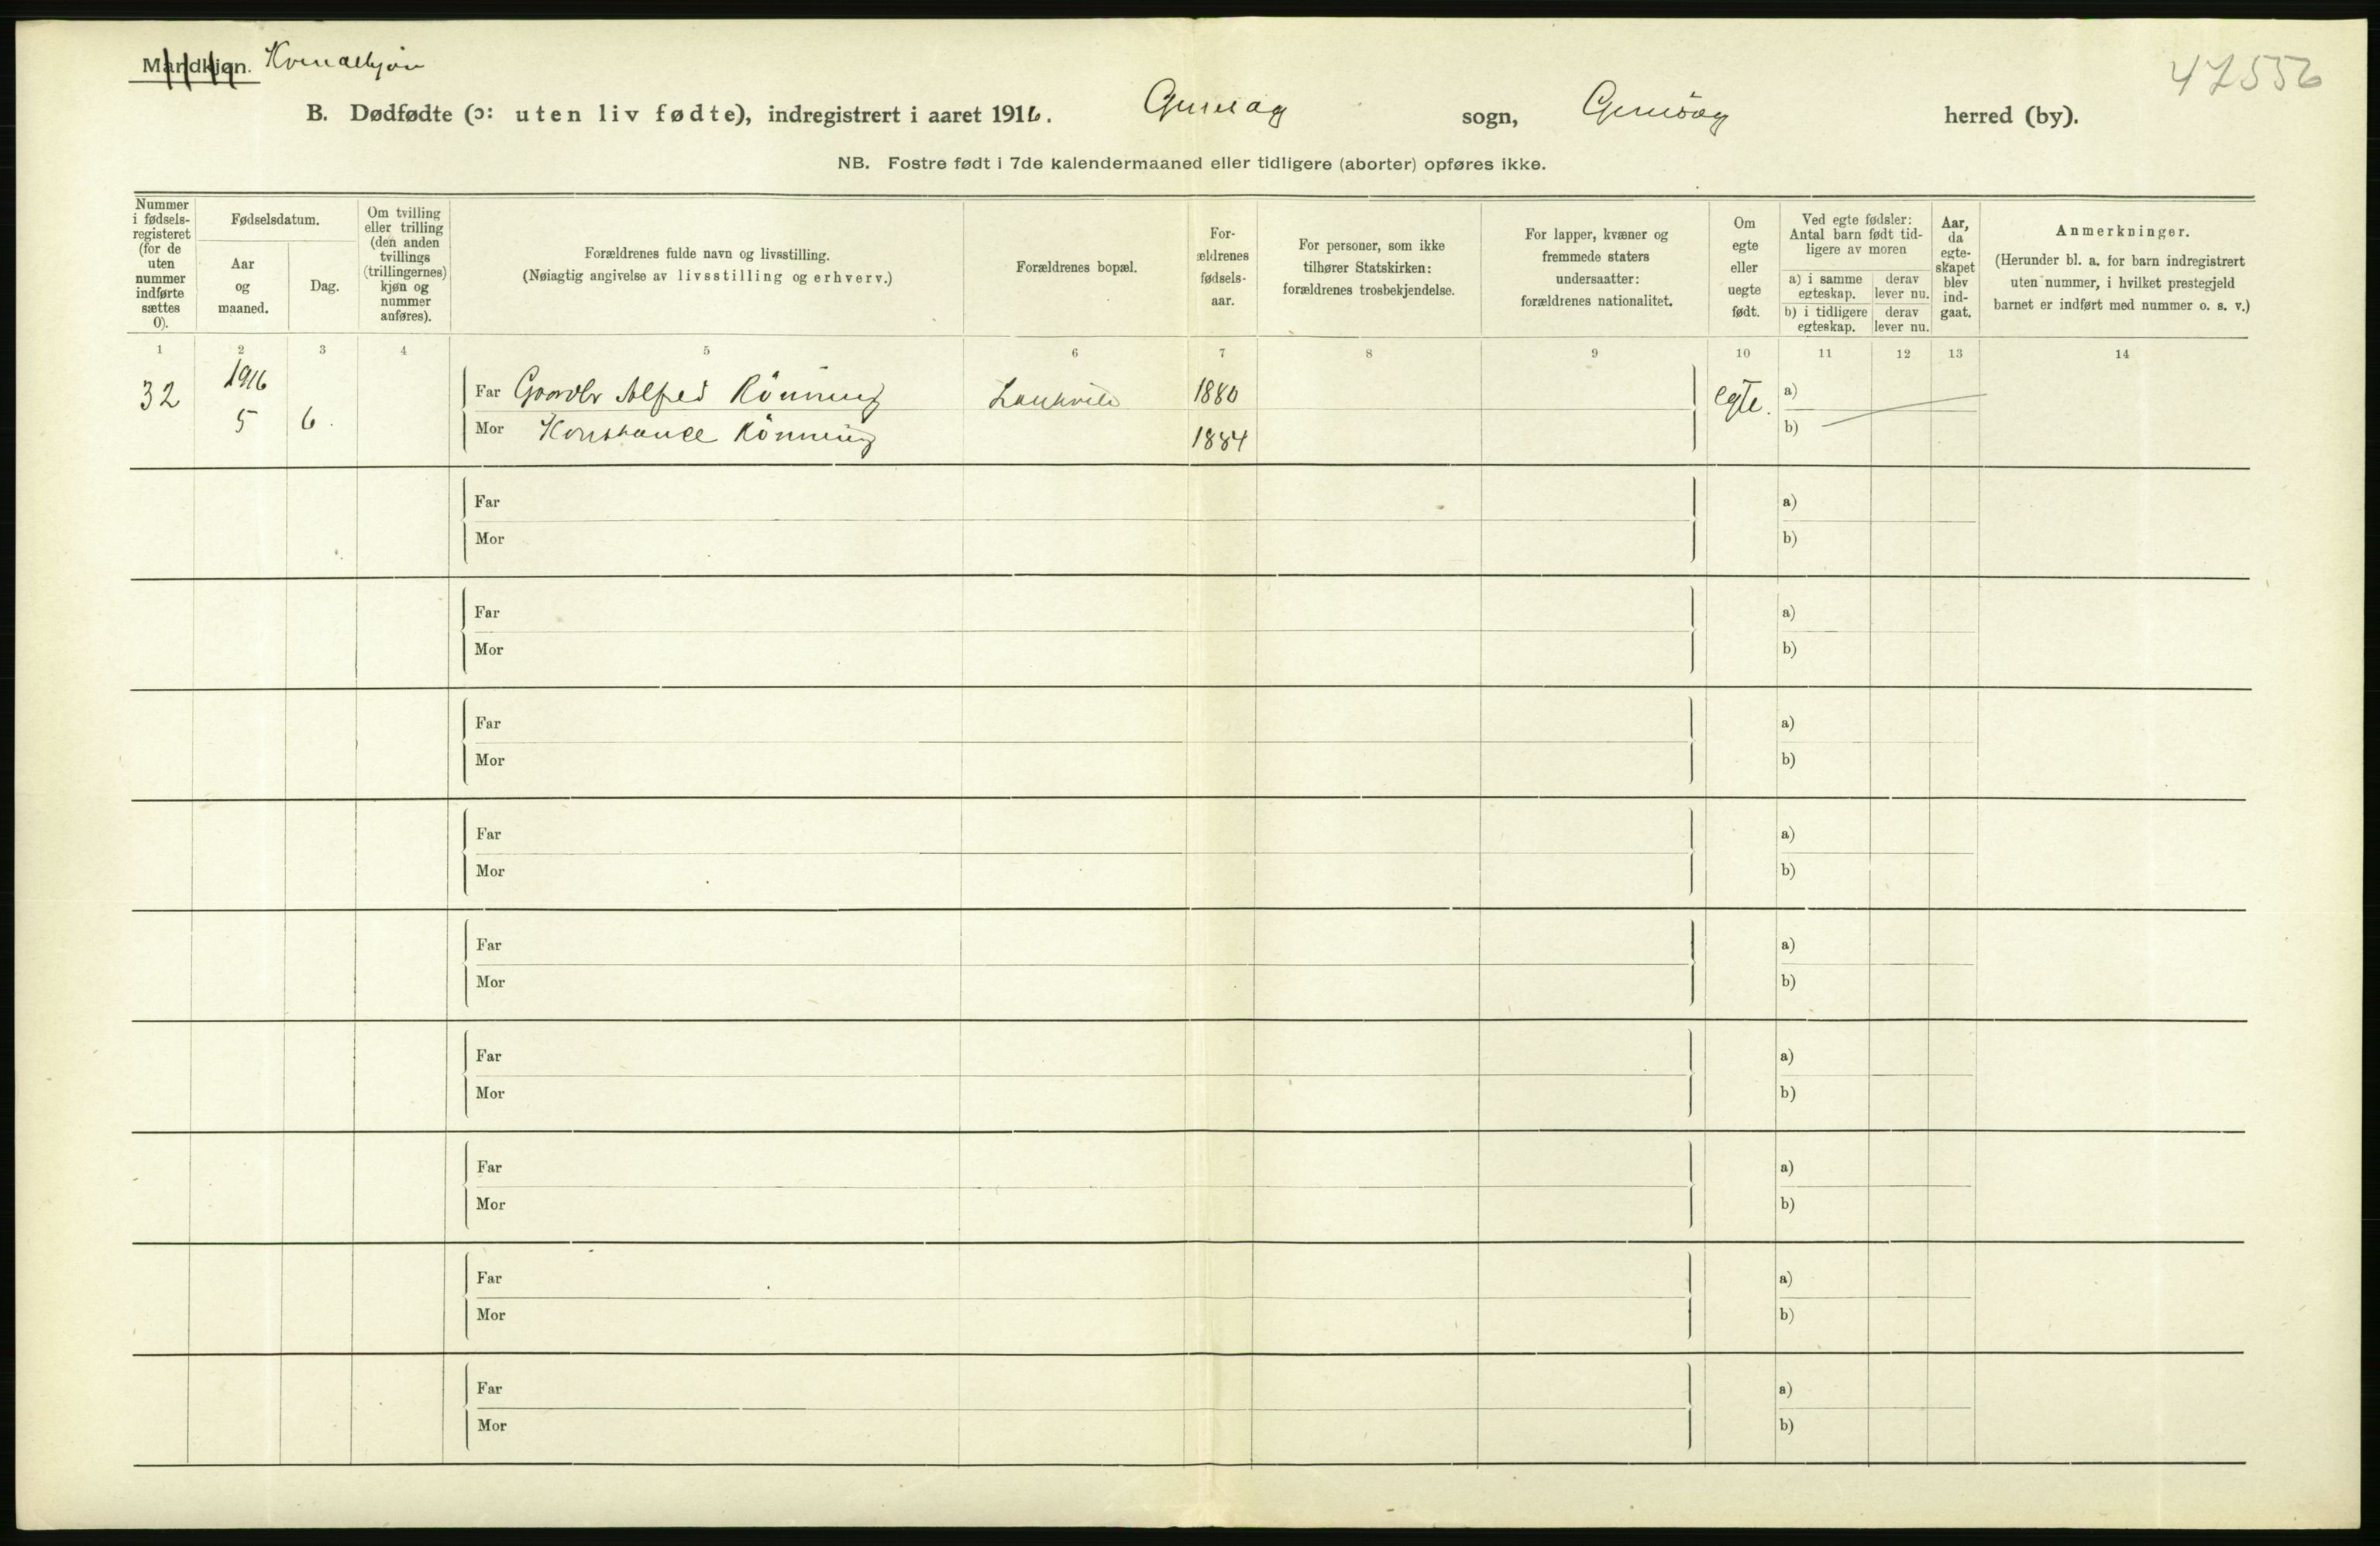 Mandkjøn. Kvindekjøn
47556
B. Dødfødte (ɔ: uten liv fødte), indregistrert i aaret 1916. sogn, herred (by).
NB. Fostre født i 7de kalendermaaned eller tidligere (aborter) opføres ikke.
Nummer i fødsels-registeret (for de uten nummer indførte sættes 0).
Fødselsdatum.
Aar og maaned.
Dag.
Om tvilling eller trilling (den anden tvillings (trillingernes) kjøn og nummer anføres).
Forældrenes fulde navn og livsstilling.
(Nøiagtig angivelse av livsstilling og erhverv.)
Forældrenes bopæl.
For-ældrenes fødsels-aar.
For personer, som ikke tilhører Statskirken: forældrenes trosbekjendelse.
For lapper, kvæner og fremmede staters undersaatter: forældrenes nationalitet.
Om egte eller uegte født.
Ved egte fødsler: Antal barn født tid-ligere av moren
a) i samme egteskap.
derav lever nu.
b) i tidligere egteskap.
derav lever nu.
Aar, da egte-skapet blev ind-gaat.
Anmerkninger.
(Herunder bl. a. for barn indregistrert uten nummer, i hvilket prestegjeld barnet er indført med nummer o. s. v.)
1 2 3 4 5 6 7 8 9 10 11 12 13 14
32 1916 Far Alfred Rönning 1880 egte. a)
5 6. Mor Konstance Rönning 1884 b)
Far a)
Mor b)
Far a)
Mor b)
Far a)
Mor b)
Far a)
Mor b)
Far a)
Mor b)
Far a)
Mor b)
Far a)
Mor b)
Far a)
Mor b)
Far a)
Mor b)